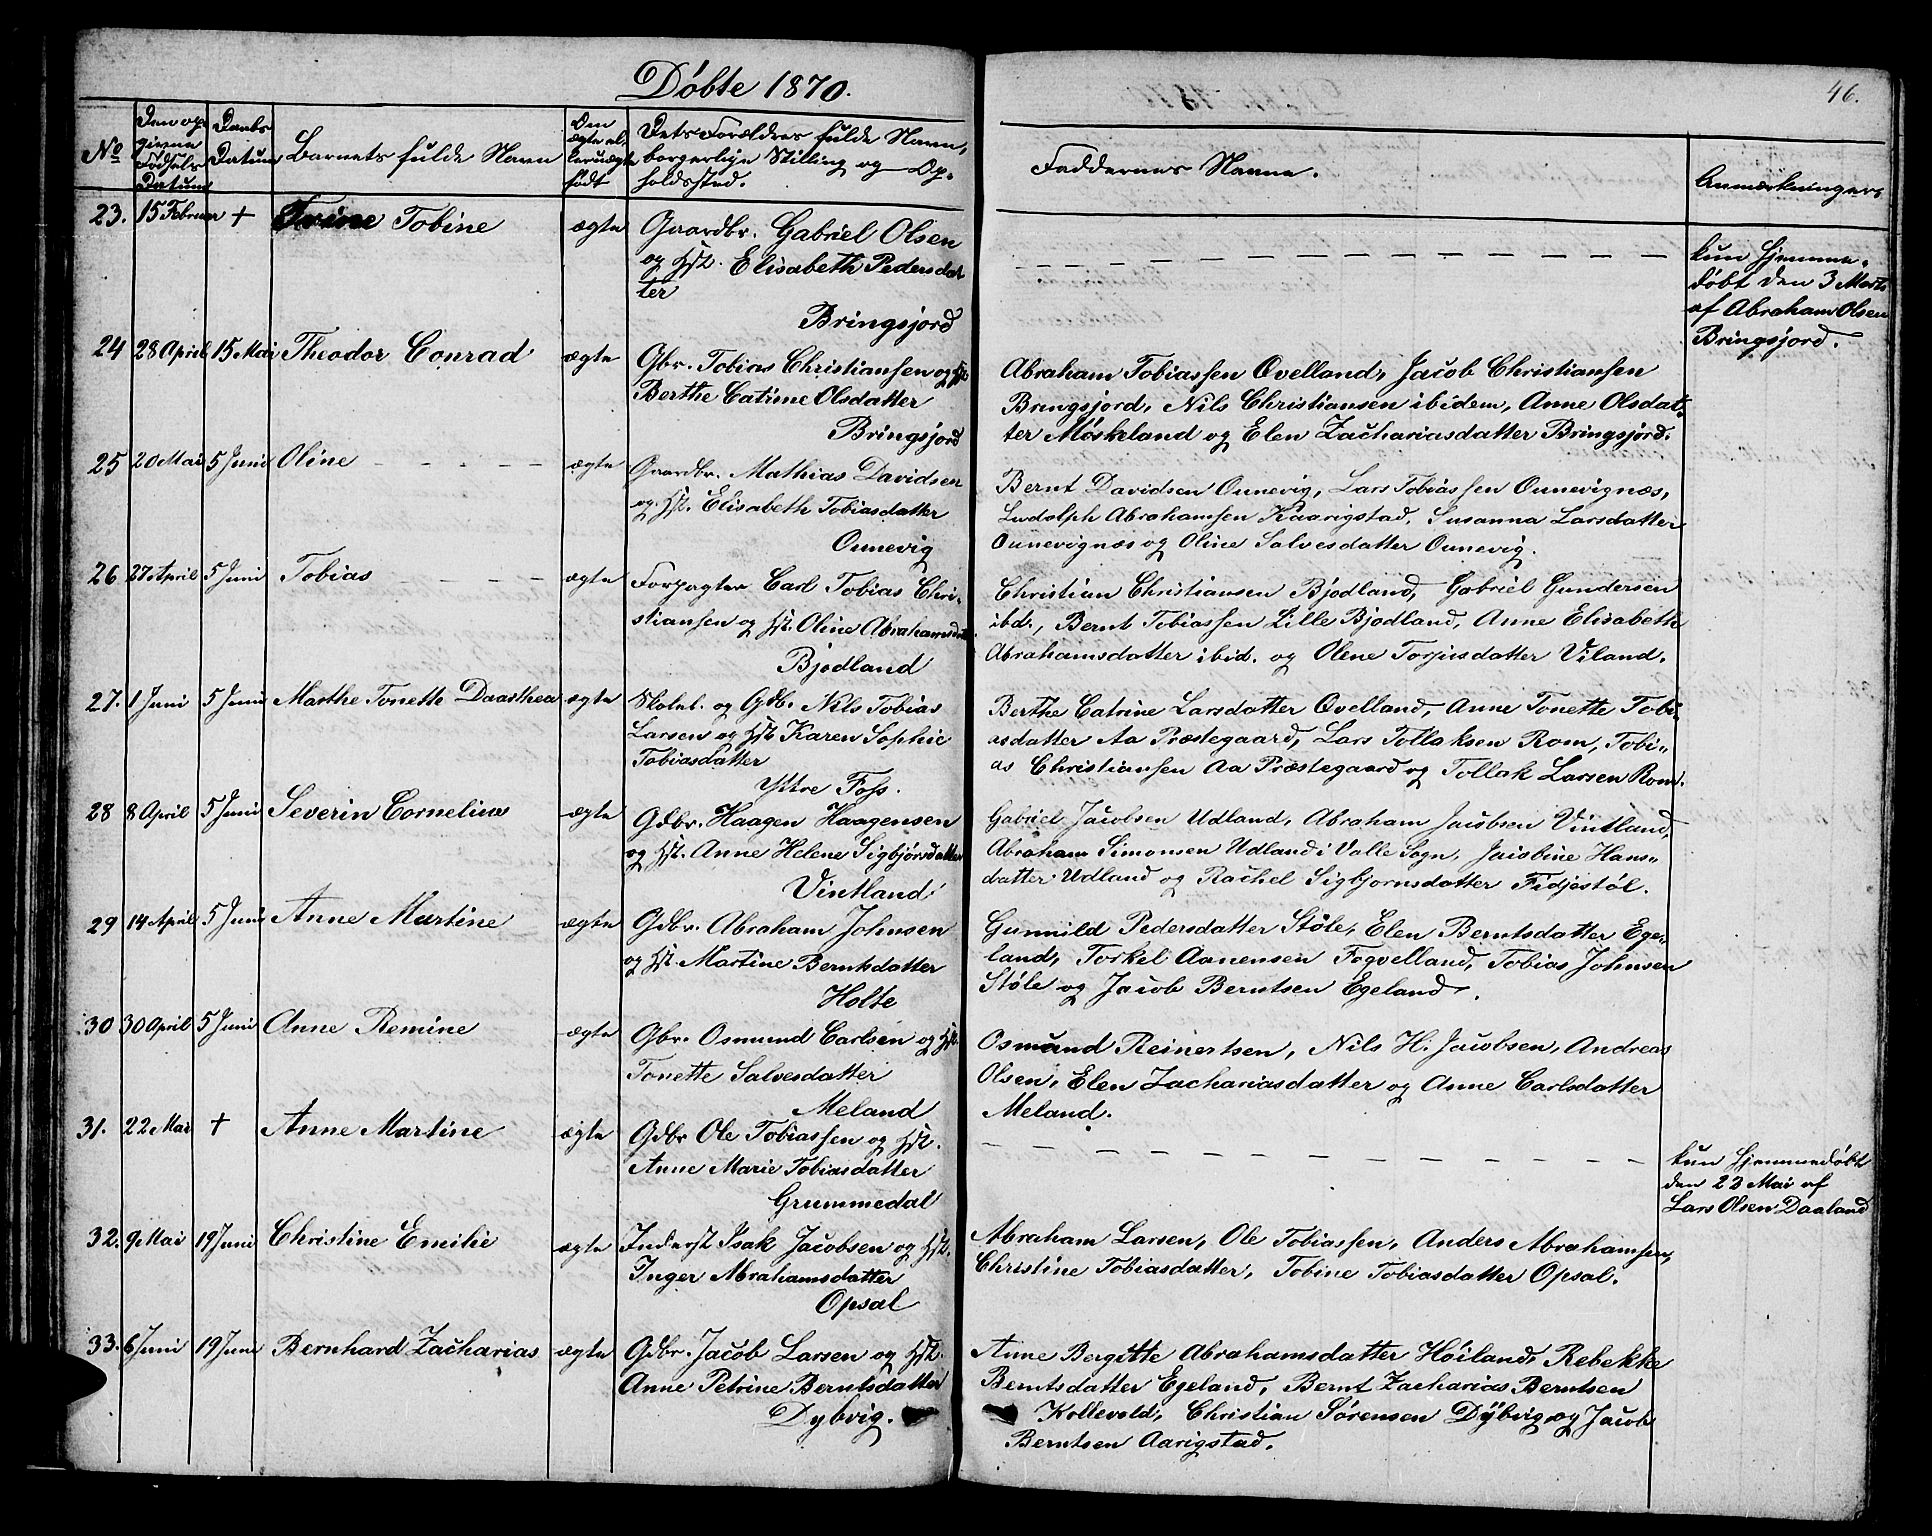 Døbte 1870.
46.
No
Den op-
givne
Fødsels
Datum
Daabs
Datum
Barnets fulde Navn
Den
ægte el-
ler uægte
født
Dets Forældres fulde Navn,
borgerlige Stilling og Op-
holdssted.
Faddernes Navne.
Anmærkninger
23. 15 Februar + Tobine ægte Gaardbr. Gabriel Olsen
og Hst. Elisabeth Pedersdat
ter
Bringsjord
kun hjemme-
døbt den 3 Marts
af Abraham Olsen
Bringsjord.
24 28 April 15 Mai Theodor Conrad ægte Gbr. Tobias Christiansen og Hst.
Berthe Catrine Olsdatter
Bringsjord
Abraham Tobiassen Ovelland, Jacob Christiansen
Bringsjord, Nils Christiansen ibidem, Anne Olsdat-
ter Møskeland og Elen Zachariasdatter Bringsjord.
25 20 Mai 5 Juni Oline ægte Gaardbr. Mathias Davidsen
og Hst. Elisabeth Tobiasdatter
Ounevig
Bernt Davidsen Ounevig, Lars Tobiassen Ounevignæs,
Ludolph Abrahamsen Kaarigstad, Susanna Larsdatter
Ounevignæs og Oline Salvesdatter Ounevig.
26 27 April 5 Juni Tobias ægte Forpagter Carl Tobias Chri-
stiansen og Hst. Oline Abrahamsdatter
Bjodland
Christian Christiansen Bjodland, Gabriel Gundersen
ibd., Bernt Tobiassen Lille Bjodland, Anne Elisabeth
Abrahamsdatter ibid. og Olene Torjusdatter Viland.
27. 1 Juni 5 Juni Marthe Tonette Daarthea ægte Skolel. og Gdb. Nils Tobias
Larsen og Hst. Karen Sophie
Tobiasdatter
Yttre Foss.
Berthe Catrine Larsdatter Ovelland, Anne Tonette Tobi-
asdatter Aa Præstegaard, Lars Tollaksen Rom, Tobi-
as Christiansen Aa Præstegaard og Tollak Larsen Rom.
28 8 April 5 Juni Severin Cornelius ægte Gdbr. Haagen Haagensen
og Hst. Anne Helene Sigbjørsdatter
Vintland
Gabriel Jacobsen Udland, Abraham Jacobsen Vintland,
Abraham Simonsen Udland i Valle Sogn, Jaisbine Hans-
datter Udland og Rachel Sigbjornsdatter Fidjestøl.
29 14 April 5 Juni Anne Martine ægte Gdbr. Abraham Johnsen
og Hst. Martine Berntsdatter
Holte
Gunnild Pedersdatter Støle, Elen Berntsdatter Ege-
land, Torkel Aanensen Fogvelland, Tobias Johnsen
Støle og Jacob Berntsen Egeland.
30 30 April 5 Juni Anne Remine ægte Gbr. Osmund Carlsen og Hst.
Tonette Salvesdatter
Meland
Osmund Reinertsen, Nils H. Jacobsen, Andreas
Olsen, Elen Zachariasdatter og Anne Carlsdatter
Meland.
31. 22 Mai + Anne Martine ægte Gdbr Ole Tobiassen og Hst.
Anne Marie Tobiasdatter
Grummedal
kun hjemmedøbt
den 22 Mai af
Lars Olsen Daaland
32. 9 Mai 19 Juni Christine Emilie ægte Inderst Isak Jacobsen og Hst.
Inger Abrahamsdatter
Opsal
Abraham Larsen, Ole Tobiassen, Anders Abrahamsen,
Christine Tobiasdatter, Tobine Tobiasdatter Opsal.
33. 6 Juni 19 Juni Bernhard Zacharias ægte Gdbr. Jacob Larsen og Hst.
Anne Petrine Berntsdatter
Dybvig.
Anne Bergitte Abrahamsdatter Høiland, Rebekke
Berntsdatter Egeland, Bernt Zacharias Berntsen
Kollevold, Christian Sørensen Dybvig og Jacob
Berntsen Aarigstad.